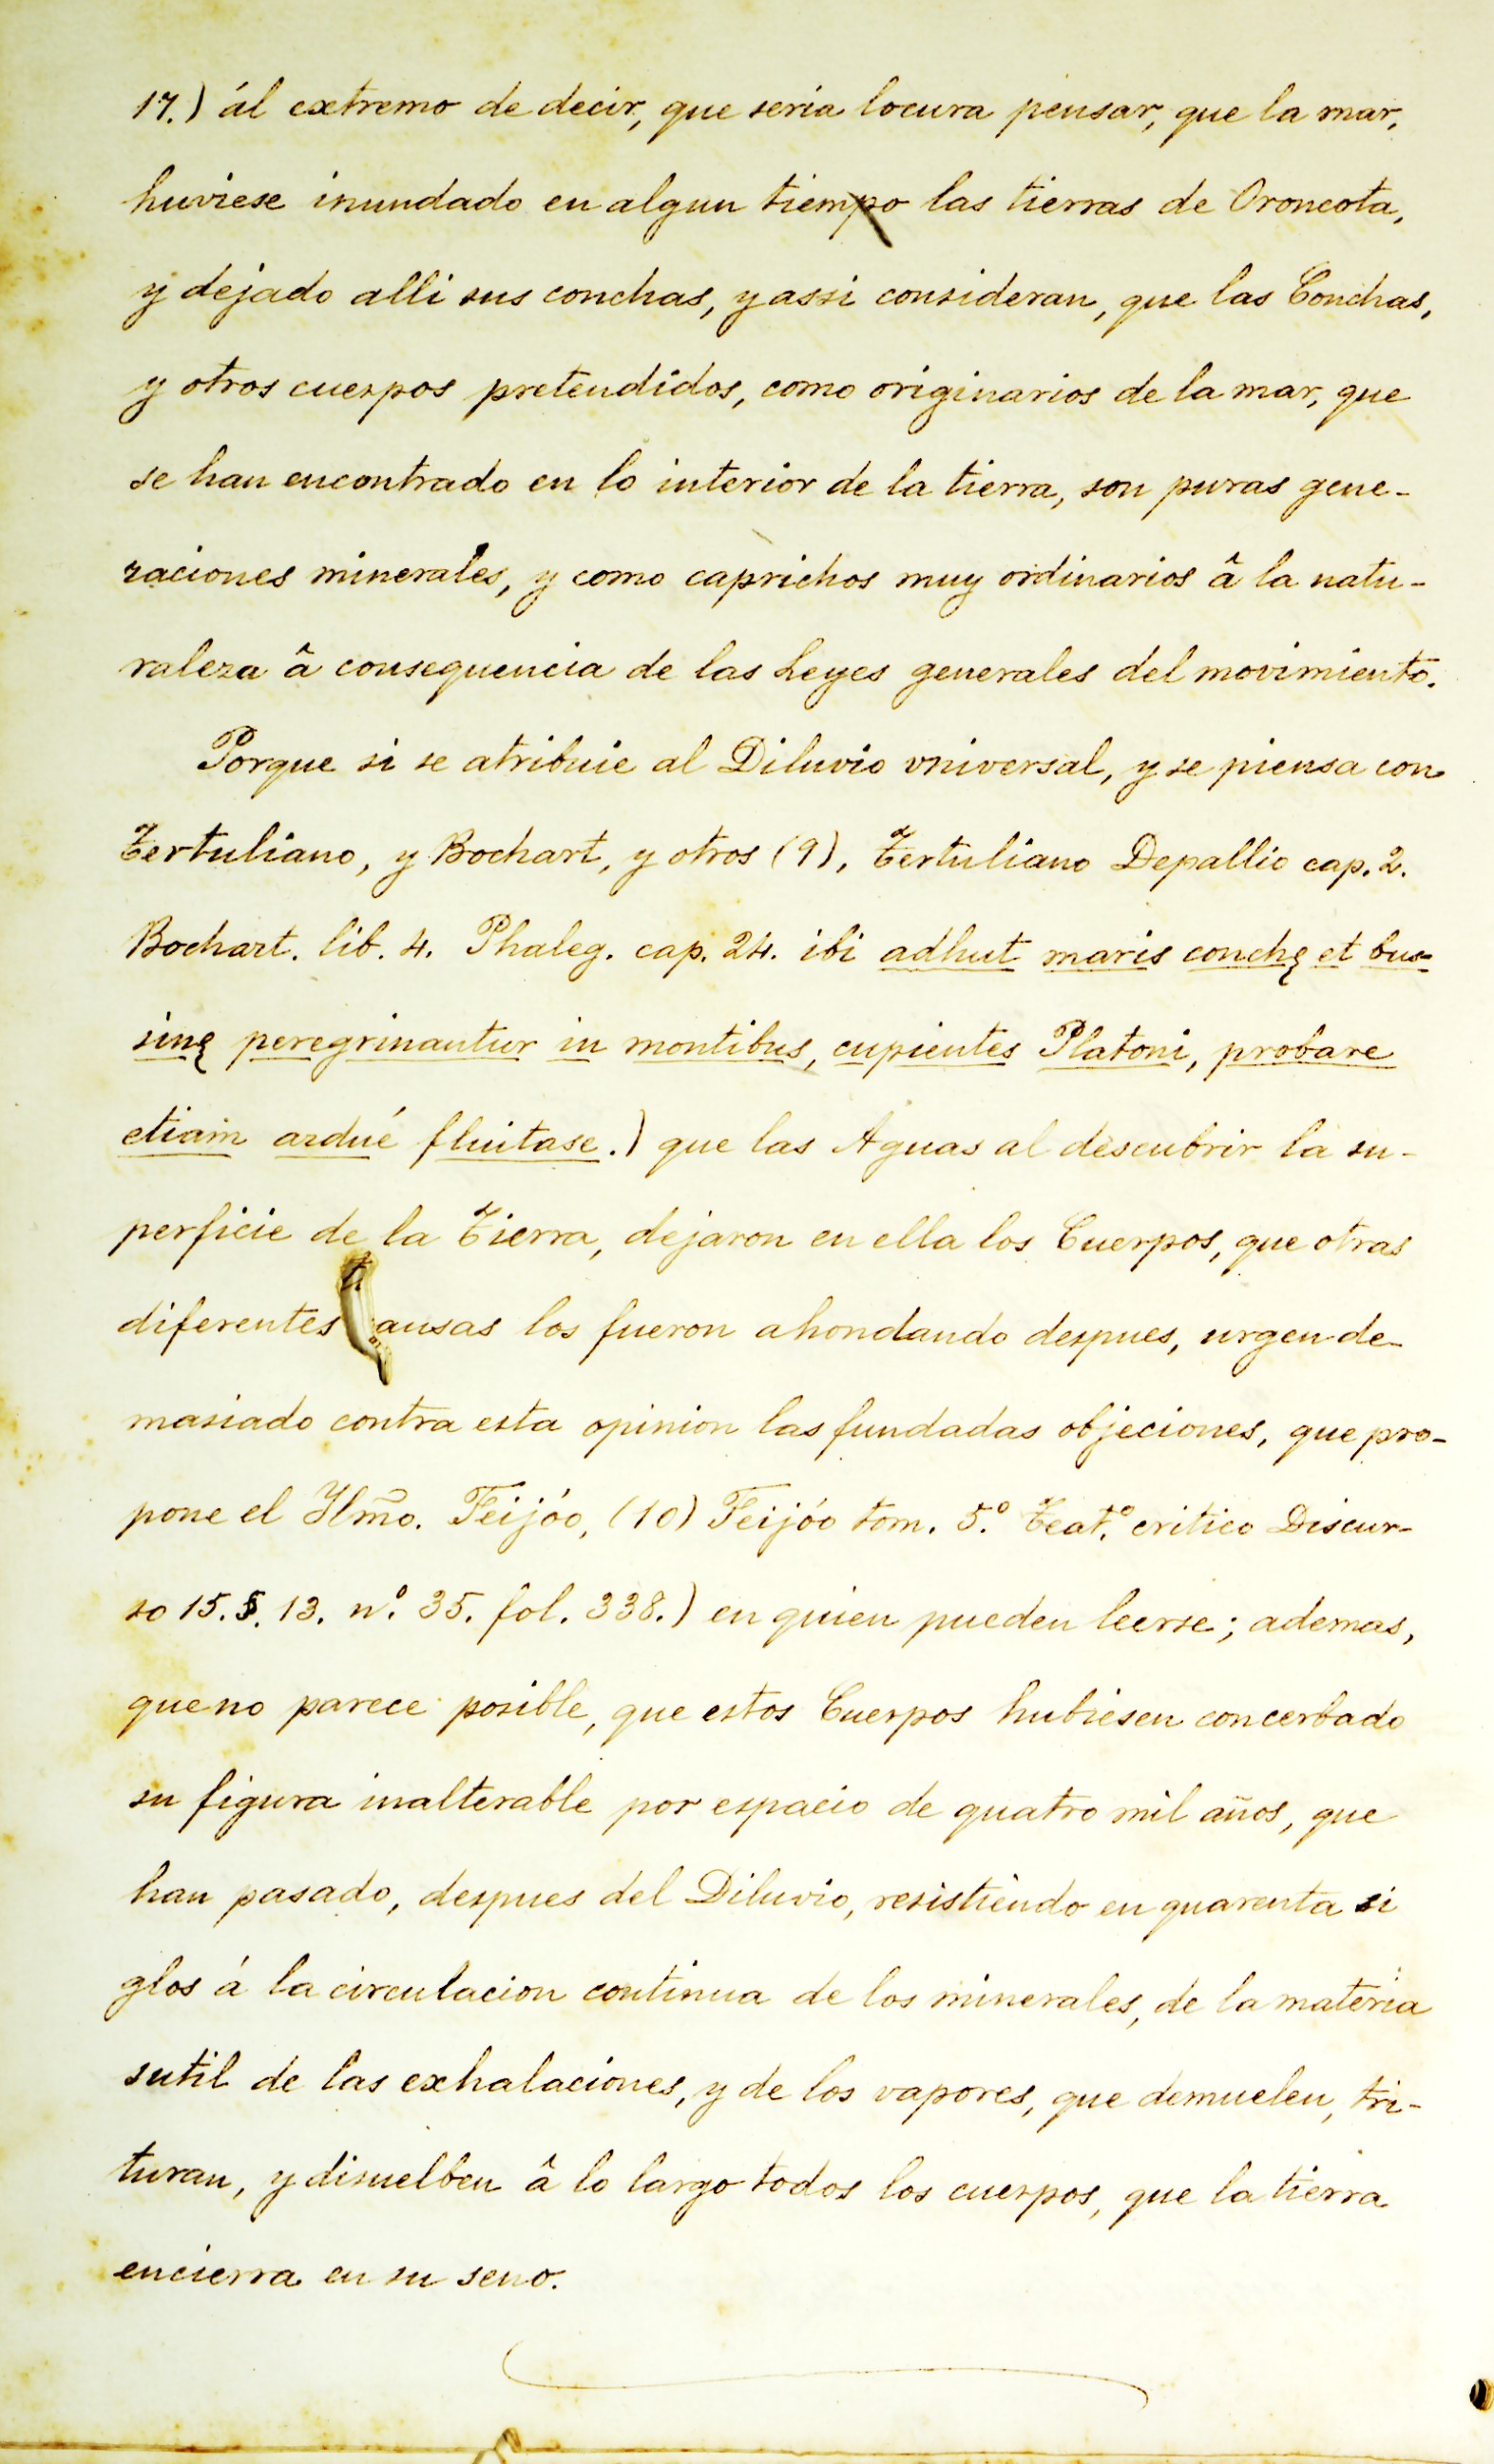 17.) ál extremo de decir, que seria locura pensar, que la mar,
huviese inundado en algun tiempo las tierras de Oroncota,
y dejado alli sus conchas, y assi consideran, que las Conchas,
y otros cuerpos pretendidos, como originarios de la mar, que
se han encontrado en lo interior de la tierra, son puras gene-
raciones minerales, y como caprichos muy ordinarios â la natu-
raleza â consequencia de las Leyes generales del movimiento.
Porque si se atribuie al Diluvio vniversal, y se piensa con
Tertuliano, y Bochart, y otros (9), Tertuliano Depallio cap. 2.
Bochart. lib. 4. Phaleg. cap. 24. ibi adhut maris conchę et bus-
sinę peregrinantur in montibus, cupientes Platoni, probare
etiam ardué fluitase.) que las Aguas al descubrir la su-
perficie de la Tierra, dejaron en ella los Cuerpos, que otras
diferentes ausas los fueron ahondando despues, urgen de-
masiado contra esta opinion las fundadas objeciones, que pro-
pone el Ylmo. Feijóo, (10) Feijóo tom. 5.º Teat.º critico Discur-
so 15. §. 13. nº. 35. fol. 338.) en quien pueden leerse; ademas,
que no parece posible, que estos Cuerpos hubiesen concerbado
su figura inalterable por espacio de quatro mil años, que
han pasado, despues del Diluvio, resistiendo en quarenta si
glos á la circulacion continua de los minerales, de la materia
sutil de las exhalaciones, y de los vapores, que demuelen, tri-
turan, y disuelben â lo largo todos los cuerpos, que la tierra
encierra en su seno.